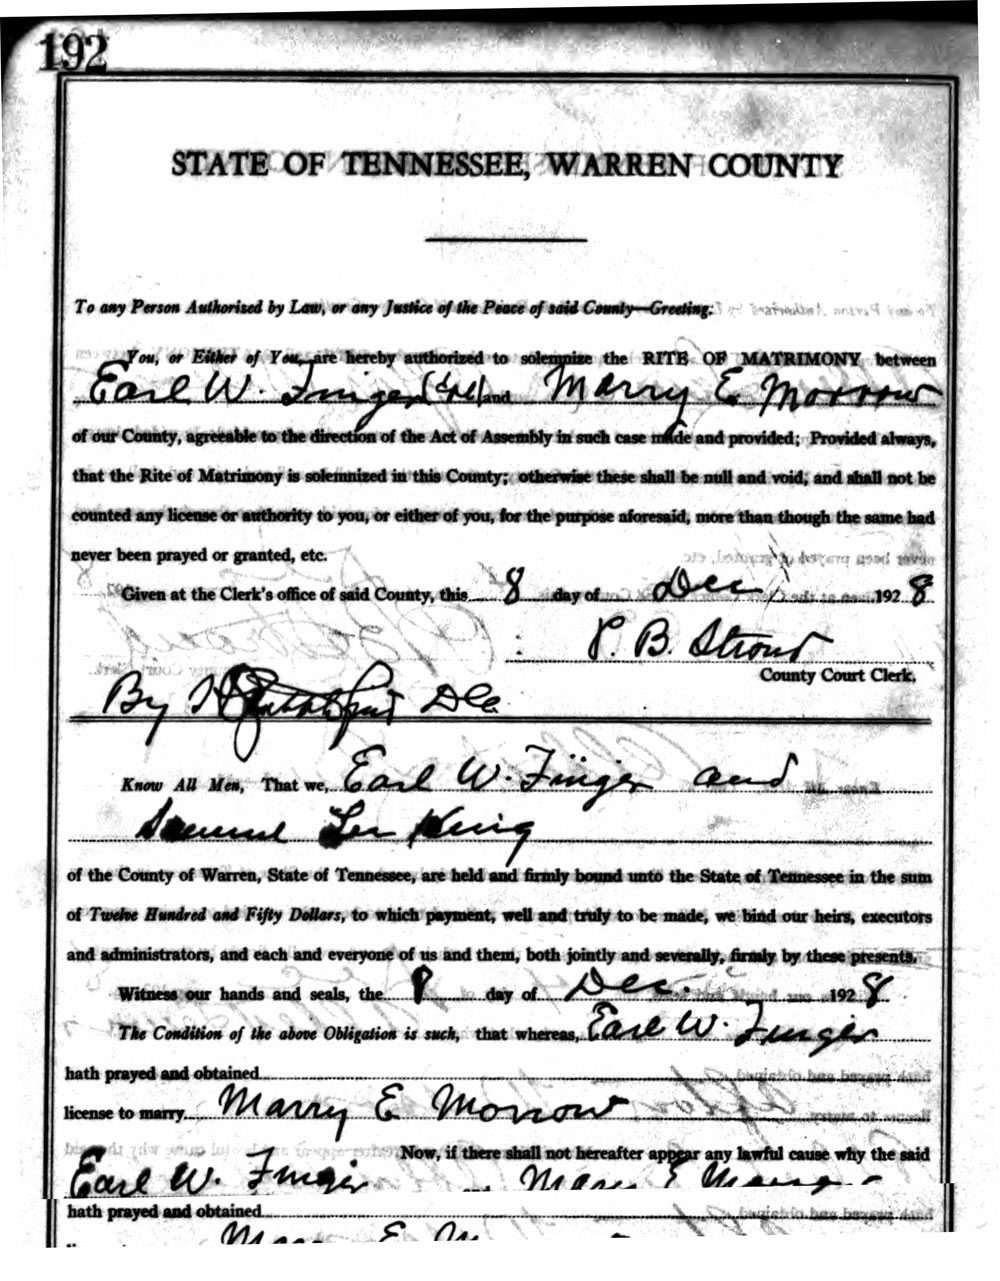 192
STATE OF TENNESSEE, WARREN COUNTY
To any Person Authorized by Law, or any Justice of the Peace of said County—Greeting:
You, or Either of You, are hereby authorized to solemnize the RITE OF MATRIMONY between
Earl W. Finger and Marry E Morrow
of our County, agreeable to the direction of the Act of Assembly in such case made and provided; Provided always,
that the Rite of Matrimony is solemnized in this County; otherwise these shall be null and void, and shall not be
counted any license or authority to you, or either of you, for the purpose aforesaid, more than though the same had
never been prayed or granted, etc.
Given at the Clerk's office of said County, this 8 day of Dec 1928
P. B. Stroud
County Court Clerk.
By
Know All Men, That we, Earl W. Finger and
Samuel Lee King
of the County of Warren, State of Tennessee, are held and firmly bound unto the State of Tennessee in the sum
of Twelve Hundred and Fifty Dollars, to which payment, well and truly to be made, we bind our heirs, executors
and administrators, and each and everyone of us and them, both jointly and severally, firmly by these presents.
Witness our hands and seals, the 8 day of Dec. 1928
The Condition of the above Obligation is such, that whereas, Earl W. Finger
hath prayed and obtained
license to marry Marry E Morrow
Now, if there shall not hereafter appear any lawful cause why the said
Earl W. Finger
hath prayed and obtained